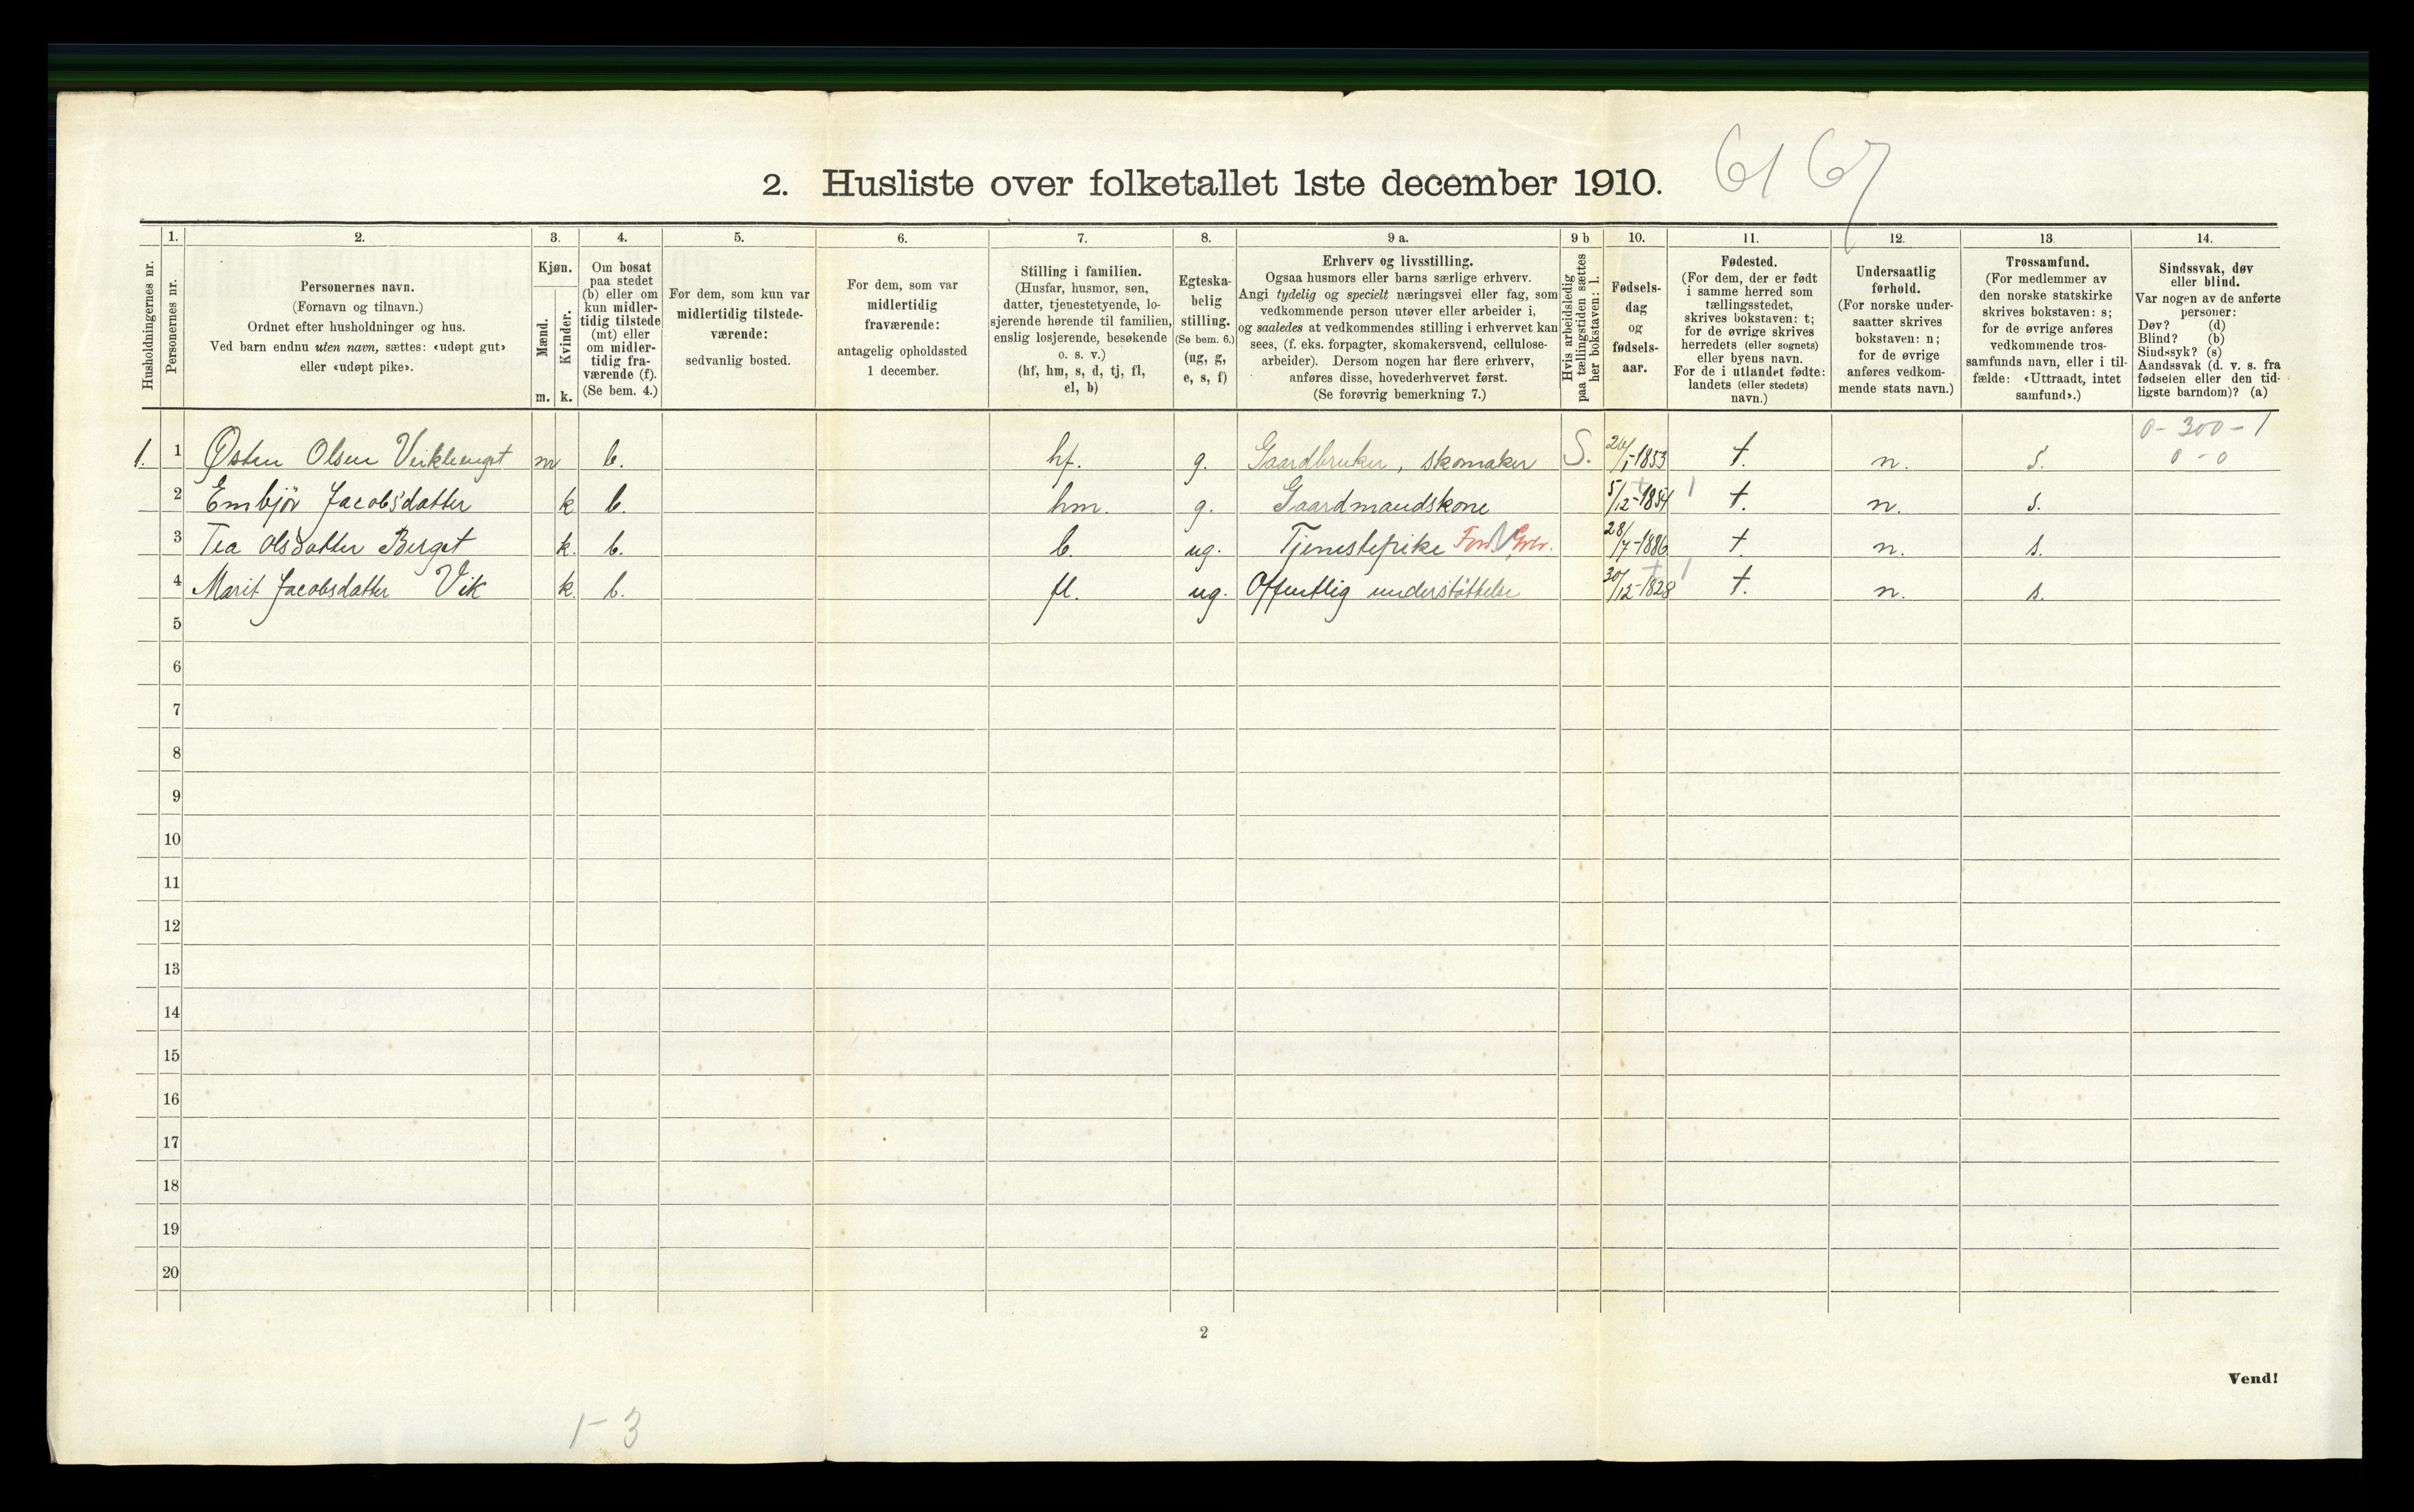 61 67
2. Husliste over folketallet 1ste december 1910.
Husholdningernes nr.
1.
Personernes nr.
2.
Personernes navn.
(Fornavn og tilnavn.)
Ordnet efter husholdninger og hus.
Ved barn endnu uten navn, sættes: «udøpt gut»
eller «udøpt pike».
3.
Kjøn.
Mænd.
Kvinder.
m. k.
4.
Om bosat
paa stedet
(b) eller om
kun midler-
tidig tilstede
(mt) eller
om midler-
tidig fra-
værende (f).
(Se bem. 4.)
5.
For dem, som kun var
midlertidig tilstede-
værende:
sedvanlig bosted.
6.
For dem, som var
midlertidig
fraværende:
antagelig opholdssted
1 december.
7.
Stilling i familien.
(Husfar, husmor, søn,
datter, tjenestetyende, lo-
sjerende hørende til familien,
enslig losjerende, besøkende
o. s. v.)
(hf, hm, s, d, tj, fl,
el, b)
8.
Egteska-
belig
stilling.
(Se bem. 6.)
(ug, g,
e, s, f)
9 a.
Erhverv og livsstilling.
Ogsaa husmors eller barns særlige erhverv.
Angi tydelig og specielt næringsvei eller fag, som
vedkommende person utøver eller arbeider i,
og saaledes at vedkommendes stilling i erhvervet kan
sees, (f. eks. forpagter, skomakersvend, cellulose-
arbeider). Dersom nogen har flere erhverv,
anføres disse, hovederhvervet først.
(Se forøvrig bemerkning 7.)
9 b
Hvis arbeidsledig
paa tællingstiden sættes
her bokstaven: l.
10.
Fødsels-
dag
og
fødsels-
aar.
11.
Fødested.
(For dem, der er født
i samme herred som
tællingsstedet,
skrives bokstaven: t;
for de øvrige skrives
herredets (eller sognets)
eller byens navn.
For de i utlandet fødte:
landets (eller stedets)
navn.)
12.
Undersaatlig
forhold.
(For norske under-
saatter skrives
bokstaven: n;
for de øvrige
anføres vedkom-
mende stats navn.)
13.
Trossamfund.
(For medlemmer av
den norske statskirke
skrives bokstaven: s;
for de øvrige anføres
vedkommende tros-
samfunds navn, eller i til-
fælde: «Uttraadt, intet
samfund».)
14.
Sindssvak, døv
eller blind.
Var nogen av de anførte
personer:
Døv? (d)
Blind? (b)
Sindssyk? (s)
Aandssvak (d. v. s. fra
fødselen eller den tid-
ligste barndom)? (a)
0-300-1
0-0
1. 1 Østen Olsen m b. hf. g. Gaardbruker, skomaker S. 26/1-1853 t. n. s.
2 Embjør Jacobsdatter k b. hm. g. Gaardmandskone 5/12-1854 t. n. s.
3 Tea Olsdatter Berget k. b. b. ug. Tjenestepike 28/7-1886 t. n. s.
4 Marit Jacobsdatter Vik k. b. fl. ug. Offentlig understøttelse 30/12-1828 t. n. s.
5
6
7
8
9
10
11
12
13
14
15
16
17
18
19
20
2
Vend!
1-3